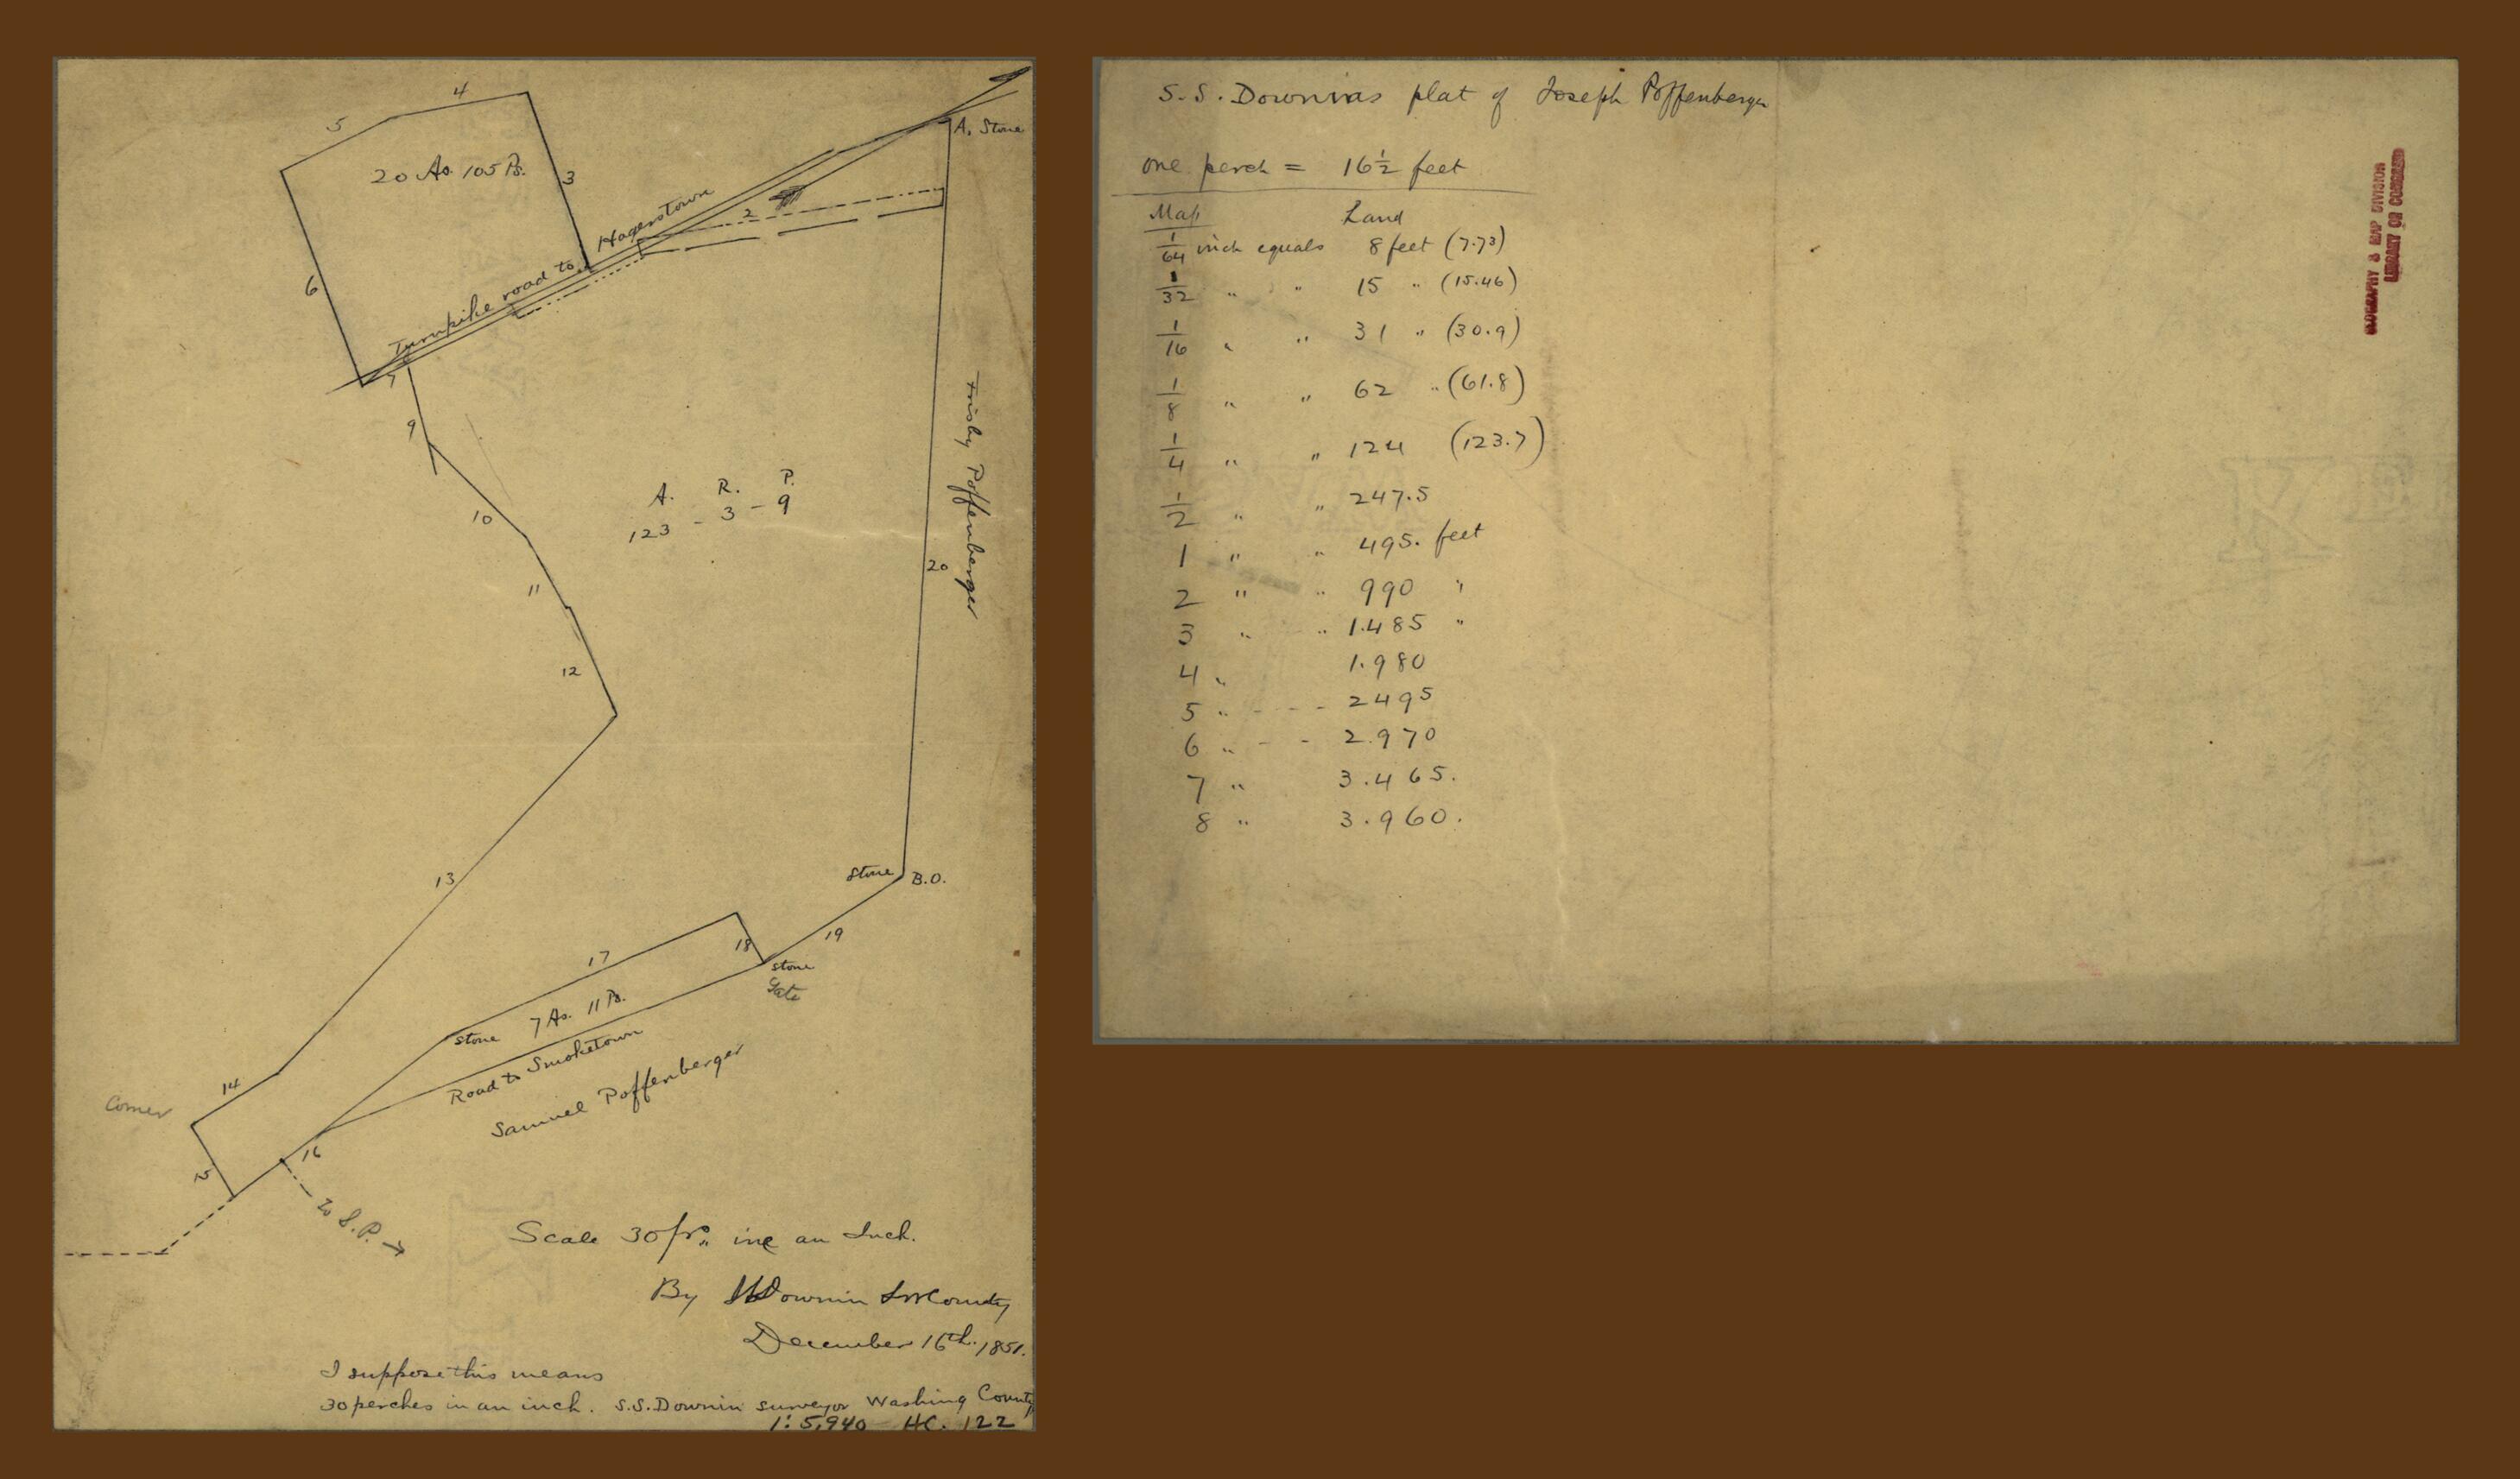 4
5
20 As. 105 Ps.
3
A. Stone
2
Turnpike road to Hagerstown
6
7
9
Frisby Poffenberger
A. R. P.
123 - 3 - 9
10
20
11
12
13
Stone B.O.
19
18
17
stone
Gate
7 As. 11 Ps.
stone
Road to Smoketown
Samuel Poffenberger
14
Corner
16
15
to S.P. →
Scale 30 prs. in an Inch.
By SSDownin County
December 16th. 1851.
I suppose this means
30 perches in an inch. S.S. Downin surveyor Washing County
1:5,940 HC. 122
S.S. Downins plat of Joseph Poffenberger
one perch = 16 1/2 feet
Map Land
1/64 inch equals 8 feet (7.73)
1/32 " " 15 " (15.46)
1/16 " " 31 " (30.9)
1/8 " " 62 " (61.8)
1/4 " " 124 (123.7)
1/2 " " 247.5
1 " " 495. feet
2 " " 990 "
3 " " 1.485 "
4 " 1.980
5 " - - - 2495
6 " - - 2.970
7 " 3.465.
8 " 3.960.
GEOGRAPHY & MAP DIVISION
LIBRARY OF CONGRESS